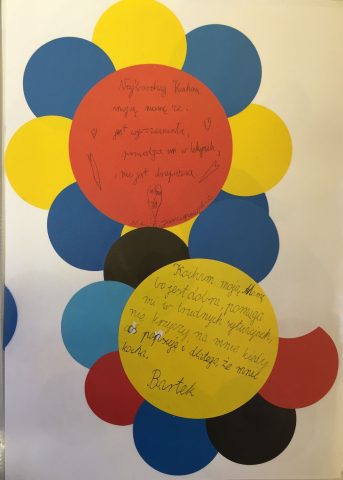 Najbardziej Kocham
moją mamę że.
jest uprzejmiesta,
pomadza mi w lekcjach,
i nie jest
Kocham moją Mamę
bo jest dobra, pomaga
mi w trudnych sytuacjach,
nie krzyczy na mnie kiedy
coś popsuję i dlatego, że mnie
kocha.
Bartek